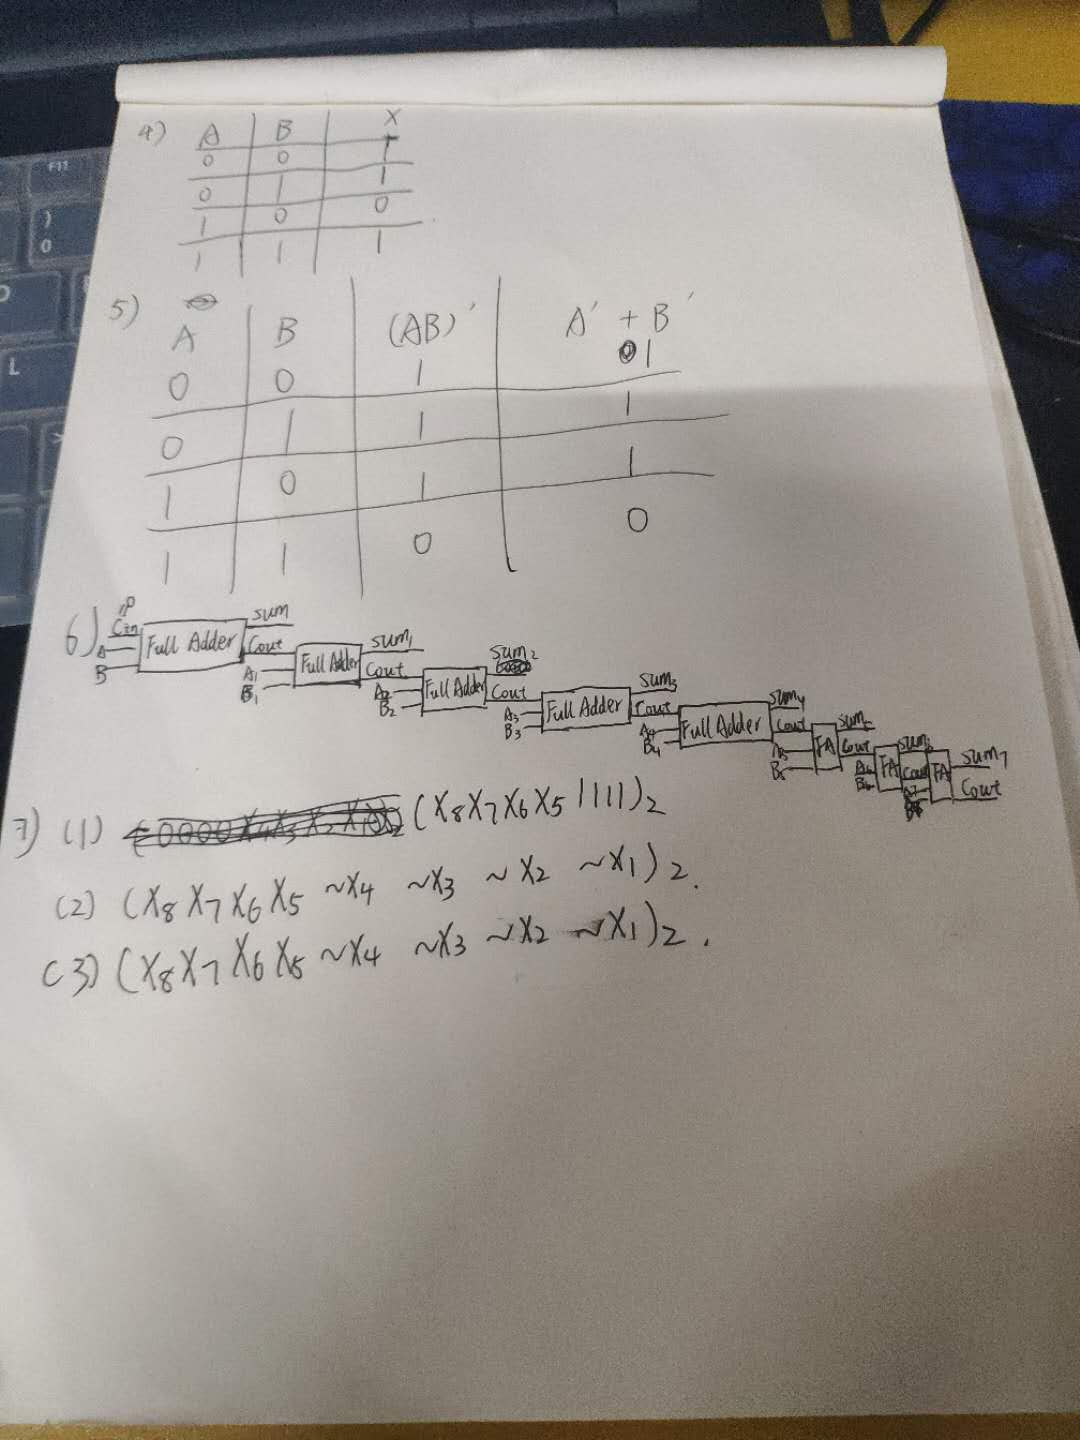 4) A B X
0 0 1
0 1 1
1 0 0
1 1 1
5) A B (AB)' A' + B'
0 0 1 1
0 1 1 1
1 0 1 1
1 1 0 0
6) Cin A B Full Adder sum Cout
A1 B1 Full Adder sum1 Cout
A2 B2 Full Adder sum2 Cout
A3 B3 Full Adder sum3 Cout
A4 B4 Full Adder sum4 Cout
A5 B5 FA sum5 Cout
A6 B6 FA sum6 Cout
A7 FA sum7 Cout
7) (1) (X8X7X6X5 1111)2
(2) (X8X7X6X5 ~X4 ~X3 ~X2 ~X1)2.
(3) (X8X7X6X5 ~X4 ~X3 ~X2 ~X1)2.
F11
)
0
L